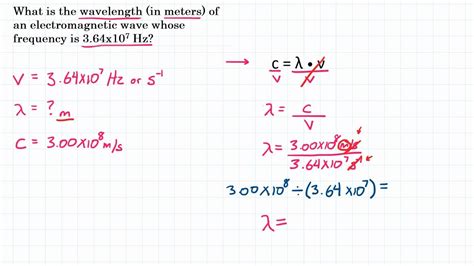 What is the wavelength (in meters) of
an electromagnetic wave whose
frequency is 3.64x10⁷ Hz?
V = 3.64x10⁷ Hz or s⁻¹
λ = ? m
C = 3.00x10⁸ m/s
→ c = λ • ν
V ν
λ = C
V
λ = 3.00x10⁸ m/s
3.64x10⁷ s
3.00x10⁸ ÷ (3.64x10⁷) =
λ =